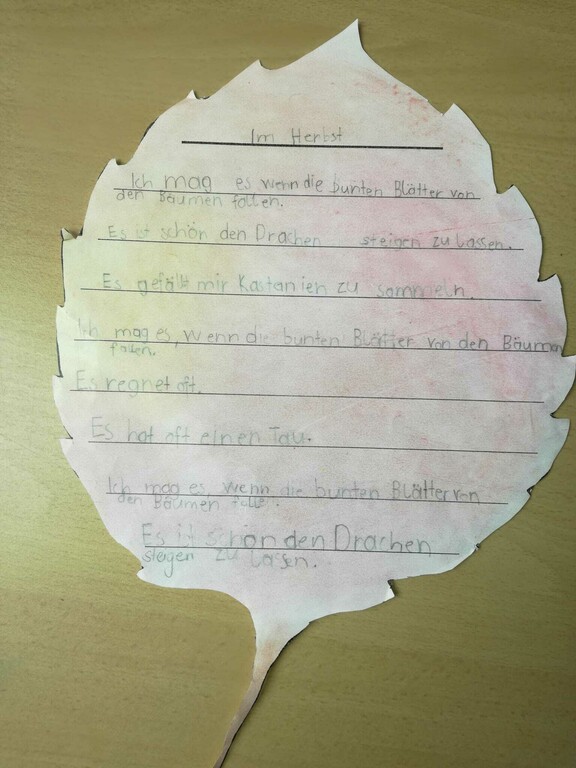 Im Herbst
Ich mag es wenn die bunten Blätter von
den Bäumen fallen.
Es ist schön den Drachen steigen zu lassen.
Es gefällt mir Kastanien zu sammeln.
Ich mag es, wenn die bunten Blätter von den Bäumen
fallen.
Es regnet oft.
Es hat oft einen Tau.
Ich mag es, wenn die bunten Blätter von
den Bäumen
Es ist schön den Drachen
steigen zu lassen.